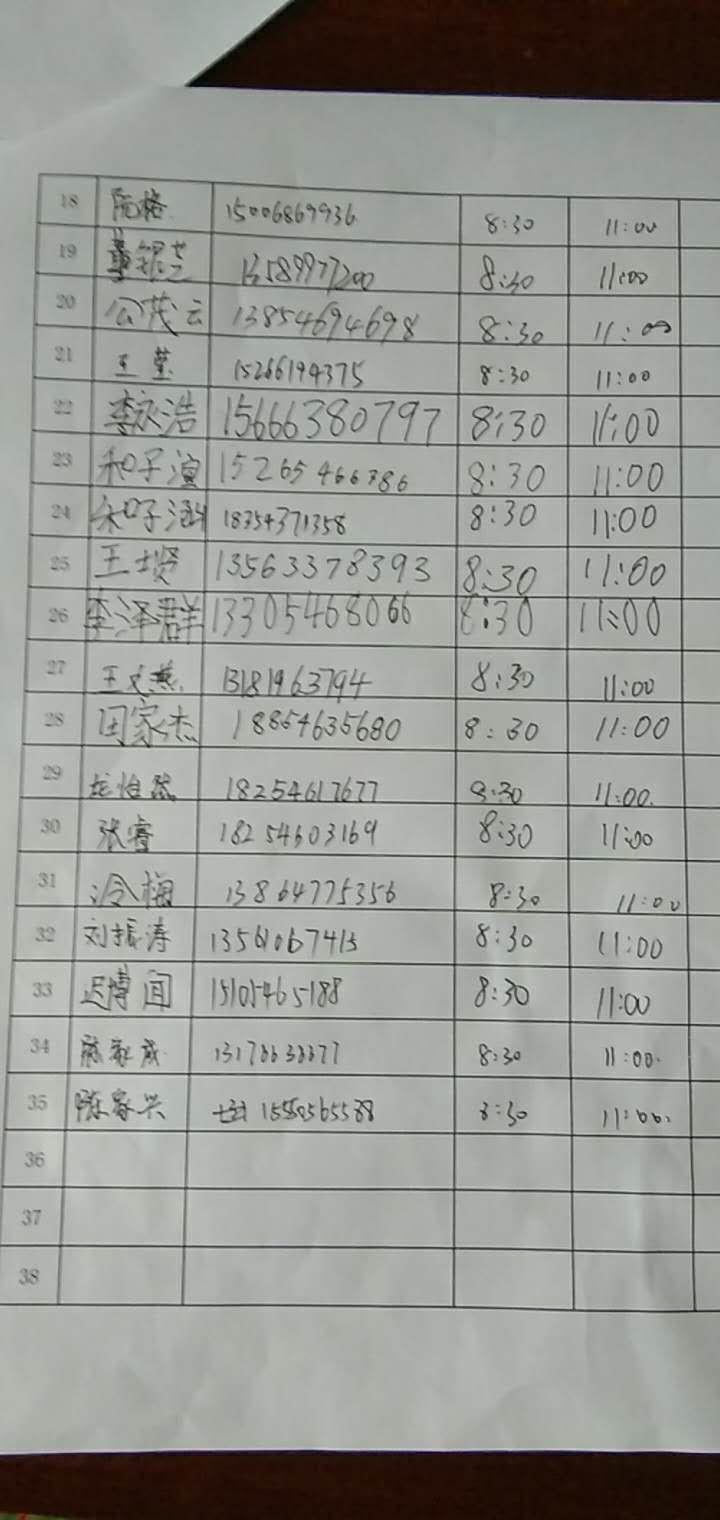 18 阮格 15006869936 8:30 11:00
19 董银芝 13589977200 8:30 11:00
20 公茂云 13854694698 8:30 11:00
21 王莹 15266194375 8:30 11:00
22 李欣浩 15666380797 8:30 11:00
23 和子渲 15265466786 8:30 11:00
24 和子涵 18354371358 8:30 11:00
25 王贤 13563378393 8:30 11:00
26 李泽群 13305468066 8:30 11:00
27 王文燕 13181963794 8:30 11:00
28 田家杰 18854635680 8:30 11:00
29 龙怡然 18254617677 8:30 11:00
30 张睿 18254603169 8:30 11:00
31 冷梅 13864775356 8:30 11:00
32 刘振涛 13561067413 8:30 11:00
33 迟博闻 15105465188 8:30 11:00
34 8:30 11:00
35 陈家兴 8:30 11:00
36
37
38